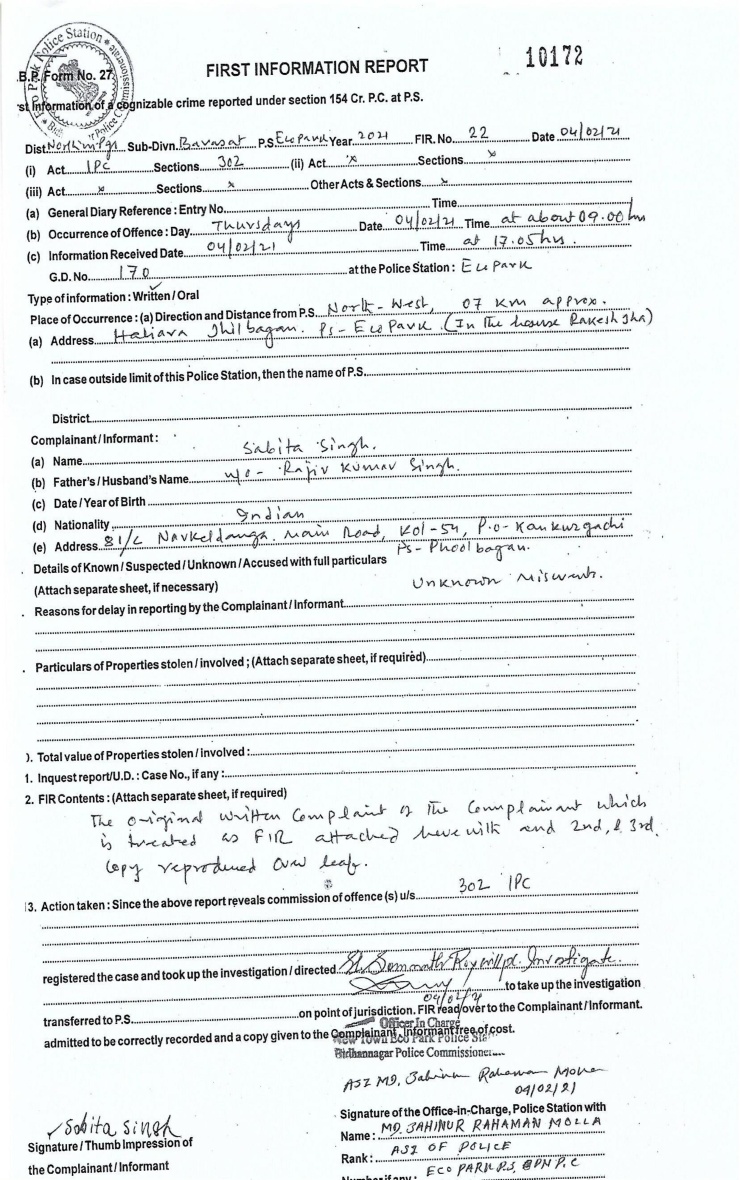 10172
Eco Park Police Station
.B.P. Form No. 27
FIRST INFORMATION REPORT
st Information of a cognizable crime reported under section 154 Cr. P.C. at P.S.
Dist. Sub-Divn. Barasat P.S. Eco Park Year 2021 FIR. No. 22 Date 04/02/21
(i) Act IPC Sections 302 (ii) Act x Sections x
(iii) Act x Sections x Other Acts & Sections x
(a) General Diary Reference : Entry No. Time
(b) Occurrence of Offence : Day Thursdays Date 04/02/21 Time at about 09.00 hrs
(c) Information Received Date 04/02/21 Time at 17.05 hrs.
G.D. No. 170 at the Police Station : Eco Park
Type of information : Written / Oral
Place of Occurrence : (a) Direction and Distance from P.S. North-West, 07 Km approx.
(a) Address Hatiara Jhilbagan. Ps- Eco Park (In the house Rakesh Jha)
(b) In case outside limit of this Police Station, then the name of P.S.
District
Complainant / Informant :
(a) Name Sabita Singh.
(b) Father's / Husband's Name w/o- Rajiv Kumar Singh.
(c) Date / Year of Birth
(d) Nationality Indian
(e) Address 81/C Narkeldanga. Main Road, Kol-54, P.o- Kankurgachi
Ps- Phoolbagan.
Details of Known / Suspected / Unknown / Accused with full particulars
(Attach separate sheet, if necessary) Unknown
. Reasons for delay in reporting by the Complainant / Informant
. Particulars of Properties stolen / involved ; (Attach separate sheet, if required)
). Total value of Properties stolen / involved :
1. Inquest report/U.D. : Case No., if any :
2. FIR Contents : (Attach separate sheet, if required)
The original written Complaint of the Complainant which
is treated as FIR attached herewith and 2nd, & 3rd
Copy reproduced over leaf.
13. Action taken : Since the above report reveals commission of offence (s) u/s 302 IPC
registered the case and took up the investigation / directed SI. Somnath Roy will pl. Investigate.
to take up the investigation
04/02/21
transferred to P.S. on point of jurisdiction. FIR read/over to the Complainant / Informant.
Officer In Charge
admitted to be correctly recorded and a copy given to the Complainant, Informant free of cost.
New Town Eco Park Police Sta
Bidhannagar Police Commissione
ASI MD. Jahinur Rahaman Molla
04/02/21
Sabita Singh
Signature / Thumb Impression of
the Complainant / Informant
Signature of the Office-in-Charge, Police Station with
Name : MD. JAHINUR RAHAMAN MOLLA
Rank : ASI OF POLICE
ECO PARK P.S, BDN P.C
Number if any :